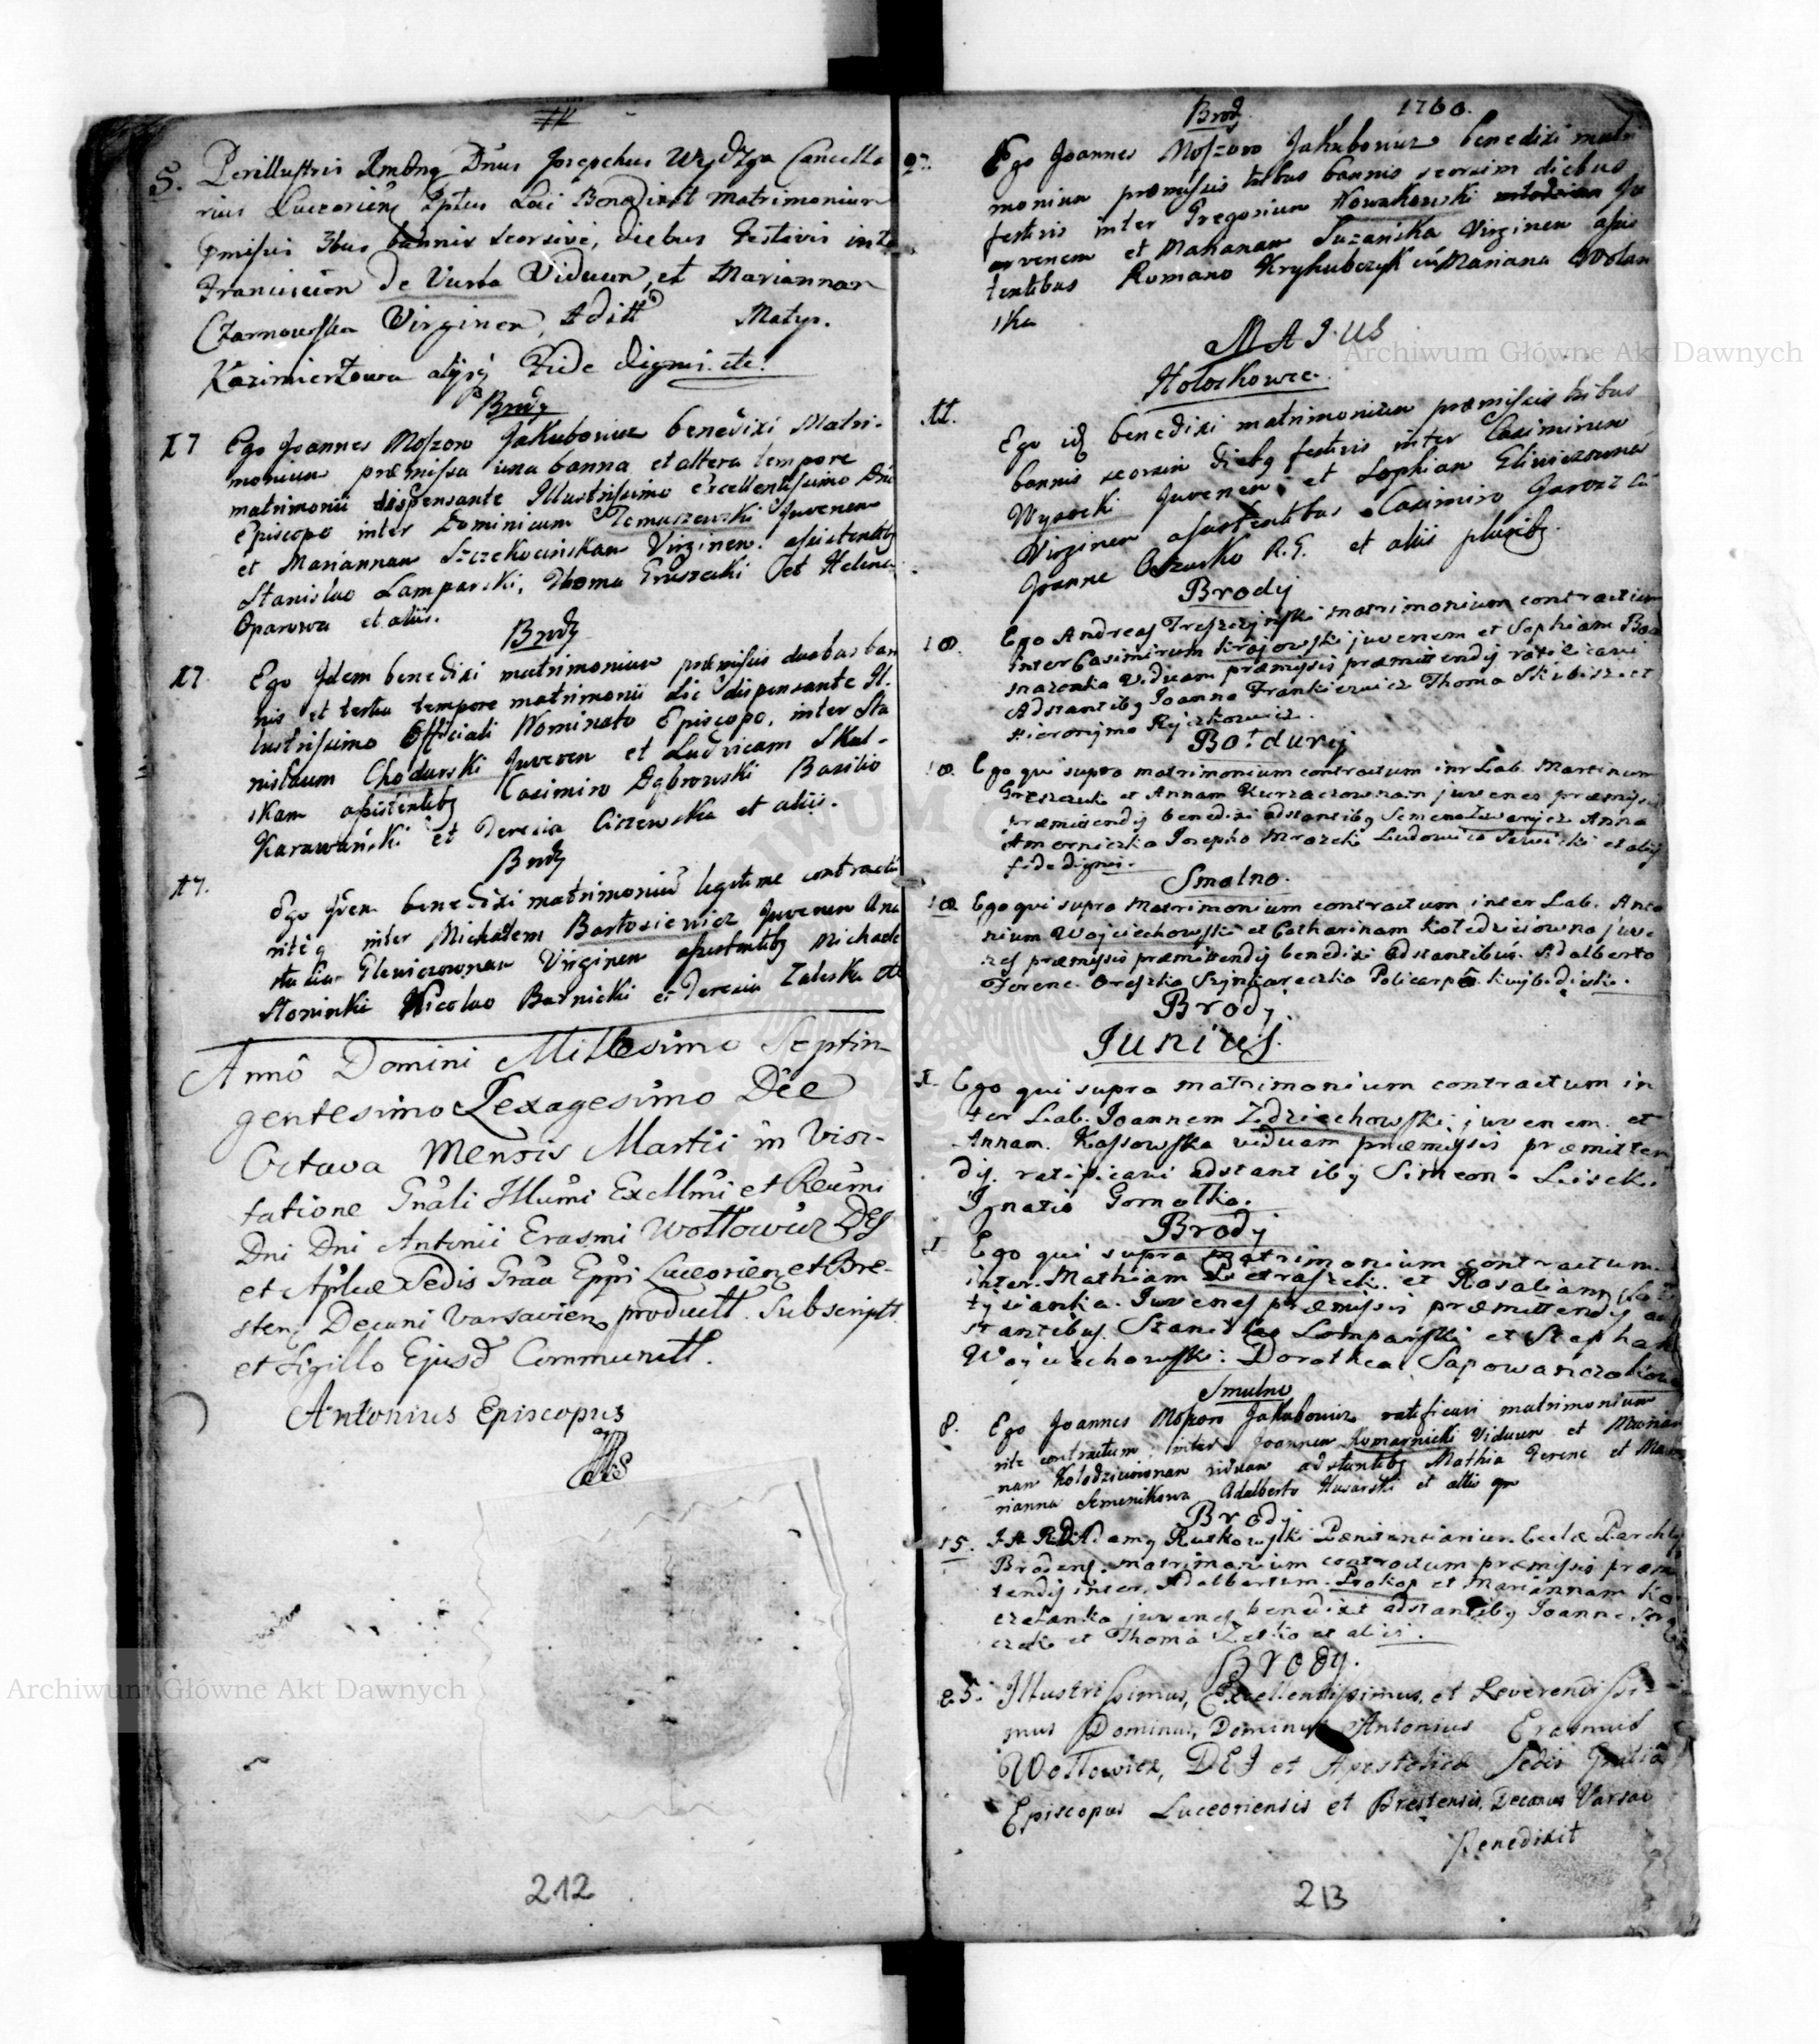 5. Perillustris Rmdng Dnus Josephus Wydzga Cancella
rius Luceorien Pptus Loci Benedixit Matrimonium
pmisis 3bus bannis seorsive, diebus festivis inte
Franciscum de Vurba Viduum, et Mariannam
Czarnowska Virginem, Adstt Matys.
Kazimierzowa alysq fide digni. etc.
Brody
17 Ego Joannes Moszoro Jakubowicz benedixi Matri-
monium præmissa una banna et altera tempore
matrimonii dispensante Illustrissimo excellentissimo Dno
Episcopo inter Dominicum Tomaszewski Juvenem
et Mariannam Szczekocinskam Virginem. assistentibg
Stanislao Lamparski, Thoma Gruszecki et Helena
Oparowa et aliis.
Brody
17 Ego Idem benedixi matrimonium præmissis duabus ban
nis et tertia tempore matrimonii die dispensante Il.
lustrissimo Officiali Nominato Episcopo, inter Sta
nislaum Chodurski Juvenem et Ludvicam Skal-
skam assistentibg Casimiro Dąbrowski Basilio
Karawański et Teresia Ciszewska et aliis.
Brody
17. Ego Idem benedixi matrimoniu legitime contractu
riteq inter Michaelem Bartosiewicz Juvenem Ana
stasiam Glewiczownam Virginem assistentibg Michaele
Słoninki Nicolao Barnicki et Teresia Zaleska etc
Annô Domini Millesimo Septin-
gentesimo Sexagesimo Die
Octava Mensis Martii in Visi-
tatione Gnâli Illumi Exellmi et Reumi
Dni Dni Antonii Erasmi Wołłowicz DEI
et Aplicæ Sedis Graa Eppi Luceorien et Bre-
sten, Decani Varsavien producitt. Subscriptt.
et Sigillo Ejusd Communitt.
Antonius Episcopus
212
Brody 1760.
27. Ego Joannes Moszoro Jakubowicz benedixi matri
monium præmissis tribus bannis seorsim diebus
festivis inter Gregorium Nowakowski Ju
venem et Marianam Suzańska Virginem assis
tentibus Romano Krykubczyk et Mariana Wolan
ska
MAJUS
Hołoskowce.
11. Ego id benedixi matrimonium præmissis tribus
bannis seorsim diebg festivis inter Casimirum
Wysocki Juvenem et Sophiam Eliwiczowna
Virginem assistentibus Casimiro Garosz cu
Joanne Oszusko R.G. et aliis pluribg.
Brody
18. Ego Andreas Treszczyński matrimonium contractum
inter Casimirum Krajowski juvenem et Sophiam Bo
snazonka Viduam præmissis præmittendis ratificavi
Adstantibg Joanne Frankiewicz Thoma Skibisz et
Hieronymo Ryczkowicz.
Bołdury
18. Ego qui supra matrimonium contractum inr Lab. Martinum
Greszczuk et Annam Kurzaczownam juvenes præmissis
præmittendis benedixi adstantibg Semen Iwanycz Anna
Amerniczka Josepho Mrozek Ludovico Sewicki et aliis
fide dignis.
Smolno.
18. Ego qui supra Matrimonium contractum inter Lab. Anto
nium Wojciechowski et Catharinam Kołedziciowna juve
nes præmissis præmittendis benedixi adstantibus. Adalberto
Ferenc. Oreszka Szynkareczka Policarpo.
Brody.
Junius.
1. Ego qui supra matrimonium contractum in
ter Lab. Joannem Zdziechowski juvenem et
Annam. Kossowska viduam præmissis præmitten
dis. ratificavi adstantibg Simeon: Lisiek.
Ignatio Gomołka.
Brody
1 Ego qui supra matrimonium contractum.
inter. Mathiam Pietraszek. et Rosaliam
tysianka. Juvenes præmissis præmittendis ad
stantibus. Stanislao Lomparski et Stephan
Wojciechowski: Dorothea Sapowanczakowa
Smulno
8. Ego Joannes Moszoro Jakubowicz ratificavi matrimonium
rite contractum inter Joannem Komarnicki Viduum et Marian
nam Kołodzieiownam viduam adstantibg Mathia Ferenc et Ma
rianna Semenikowa Adalberto Husarski et aliis
Brody
15. Rutkowski Pænitentiarius. Eccle Paroch
Brodens. matrimonium contractum præmissis præm
tendis inter. Adalbertum. Prokop et Mariannam Ko
czelanka juvenes benedixit adstantibg Joanne
czek et Thoma Zetko et aliis.
Brody.
25. Illustrissimus, Excellentissimus, et Reverendissi-
mus Dominus, Dominus Antonius Erasmus
Wołłowicz, DEI et Apostolicæ Sedis Gratiâ
Episcopus Luceoriensis et Brestensis, Decanus Varsav
Benedixit
213
Archiwum Główne Akt Dawnych
Archiwum Główne Akt Dawnych